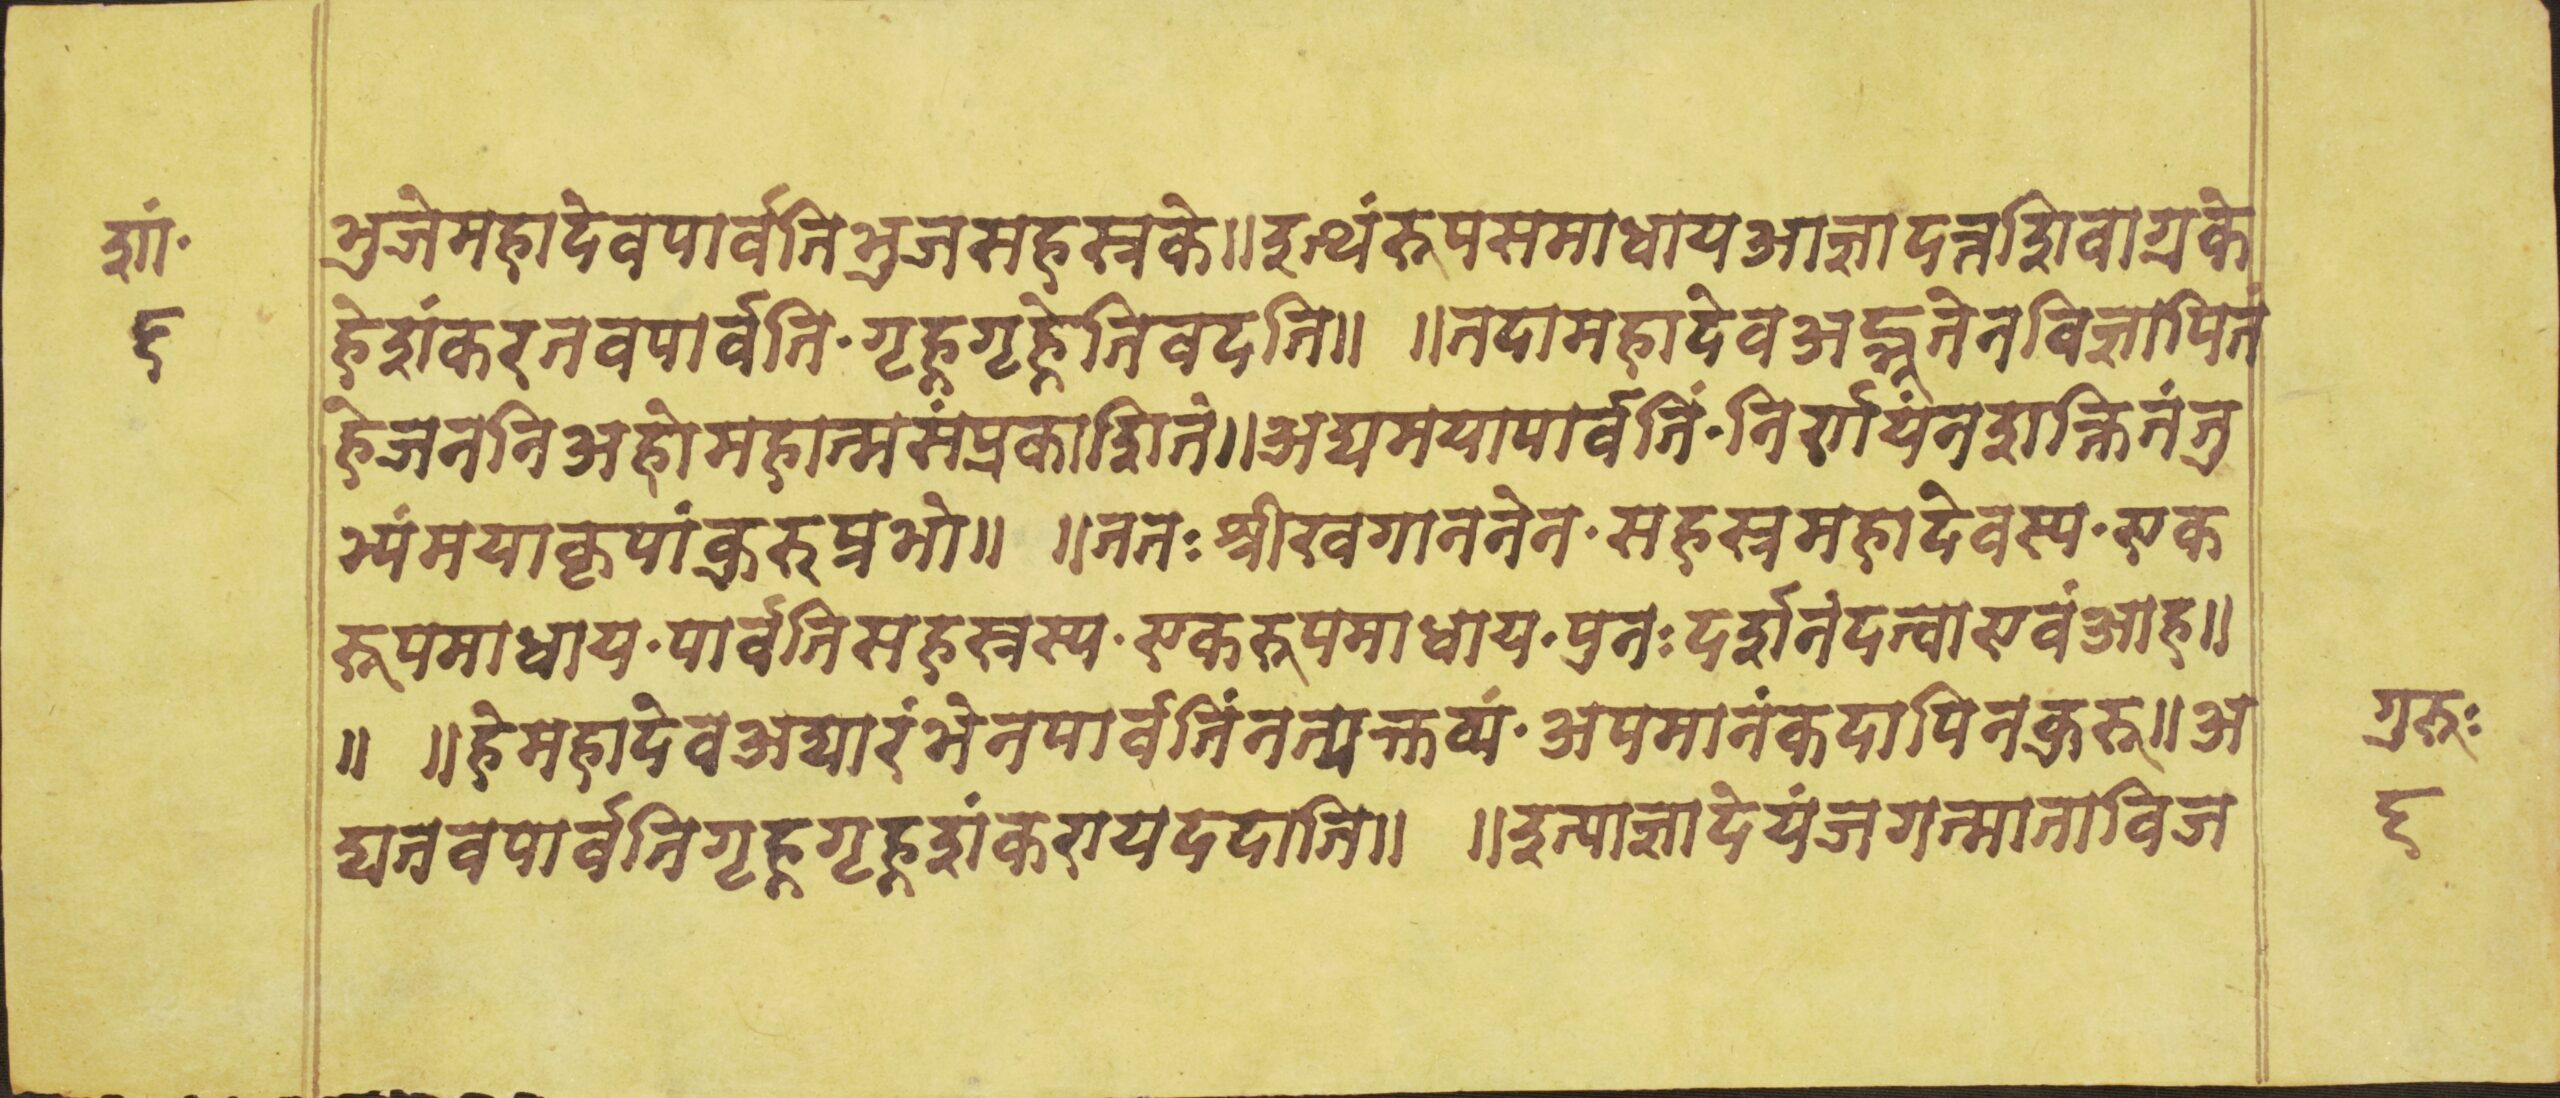 शां॰
६
भुजेमहादेवपार्वतिभुजसहस्रके॥इत्थंरूपसमाधायआज्ञादत्तशिवाग्रके
हेशंकरतवपार्वति॰गृह्णगृह्णेतिवदति॥ ॥तदामहादेवअद्भूतेनविज्ञापितं
हेजननिअहोमहात्मसंप्रकाशितं॥अद्यमयापार्वतिं॰निर्णयंनशक्तितंतु
भ्यंमयाकृपांकुरुप्रभो॥ ॥ततःश्रीखगाननेन॰सहस्रमहादेवस्य॰एक
रूपमाधाय॰पार्वतिसहस्रस्य॰एकरूपमाधाय॰पुनःदर्शनंदत्वाएवंआह॥
॥ ॥हेमहादेवअद्यारंभेनपार्वतिंनत्यक्तव्यं॰अपमानंकदापिनकुरू॥अ
द्यतवपार्वतिगृह्णगृह्णशंकरायददाति॥ ॥इत्याज्ञादेयंजगन्माताविज
गुरूः
६